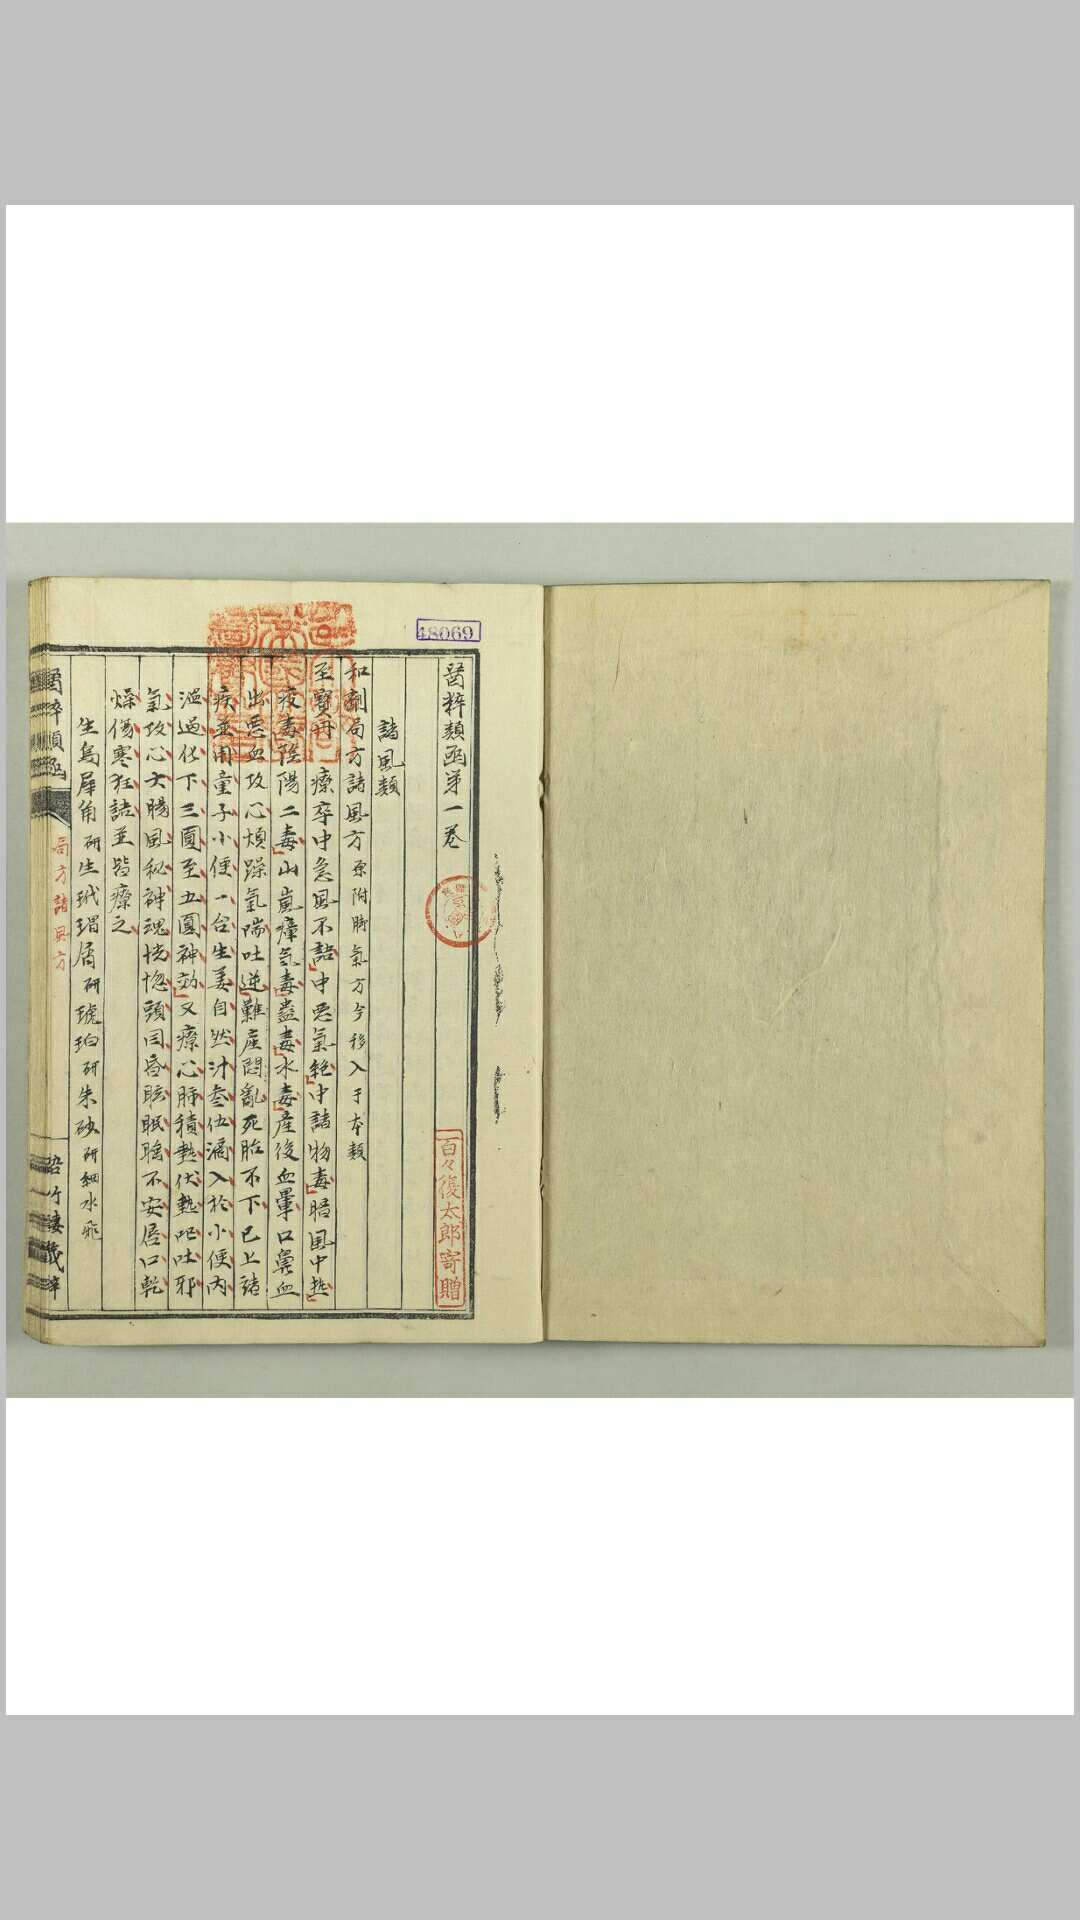 48069
醫粹類函第一卷
百々復太郎寄贈
諸風類
和劑局方諸風方 原附脚氣方今移入于本類
至寶丹 療卒中急風不語中悪氣絶中諸物毒暗風中热
疫毒陰陽二毒山嵐瘴氣毒蠱毒水毒産後血暈口鼻血
出悪血攻心煩躁氣喘吐逆難産悶亂死胎不下已上諸
疾並用童子小便一合生姜自然汁叁伍滴入於小便内
温過化下三圓至五圓神効又療心肺積熱伏熱呕吐邪
氣攻心大腸風秘神魂恍惚頭目昏眩眠睡不安唇口乾
燥傷寒狂語並皆療之
生烏犀角研生玳瑁屑研琥珀研朱砂研細水飛
醫粹類函
局方諸風方